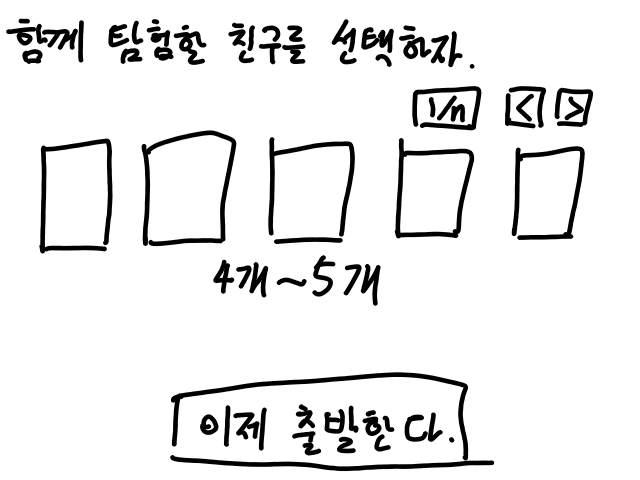 함께 탐험할 친구를 선택하자.
1/n < >
4개~5개
이제 출발한다.